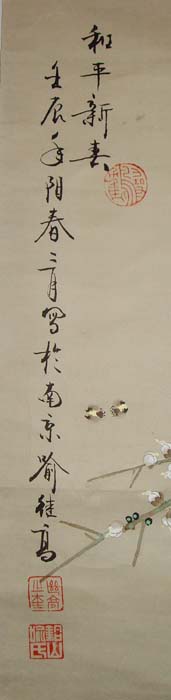 和平新春
壬辰年阳春二月写於南京喻继高